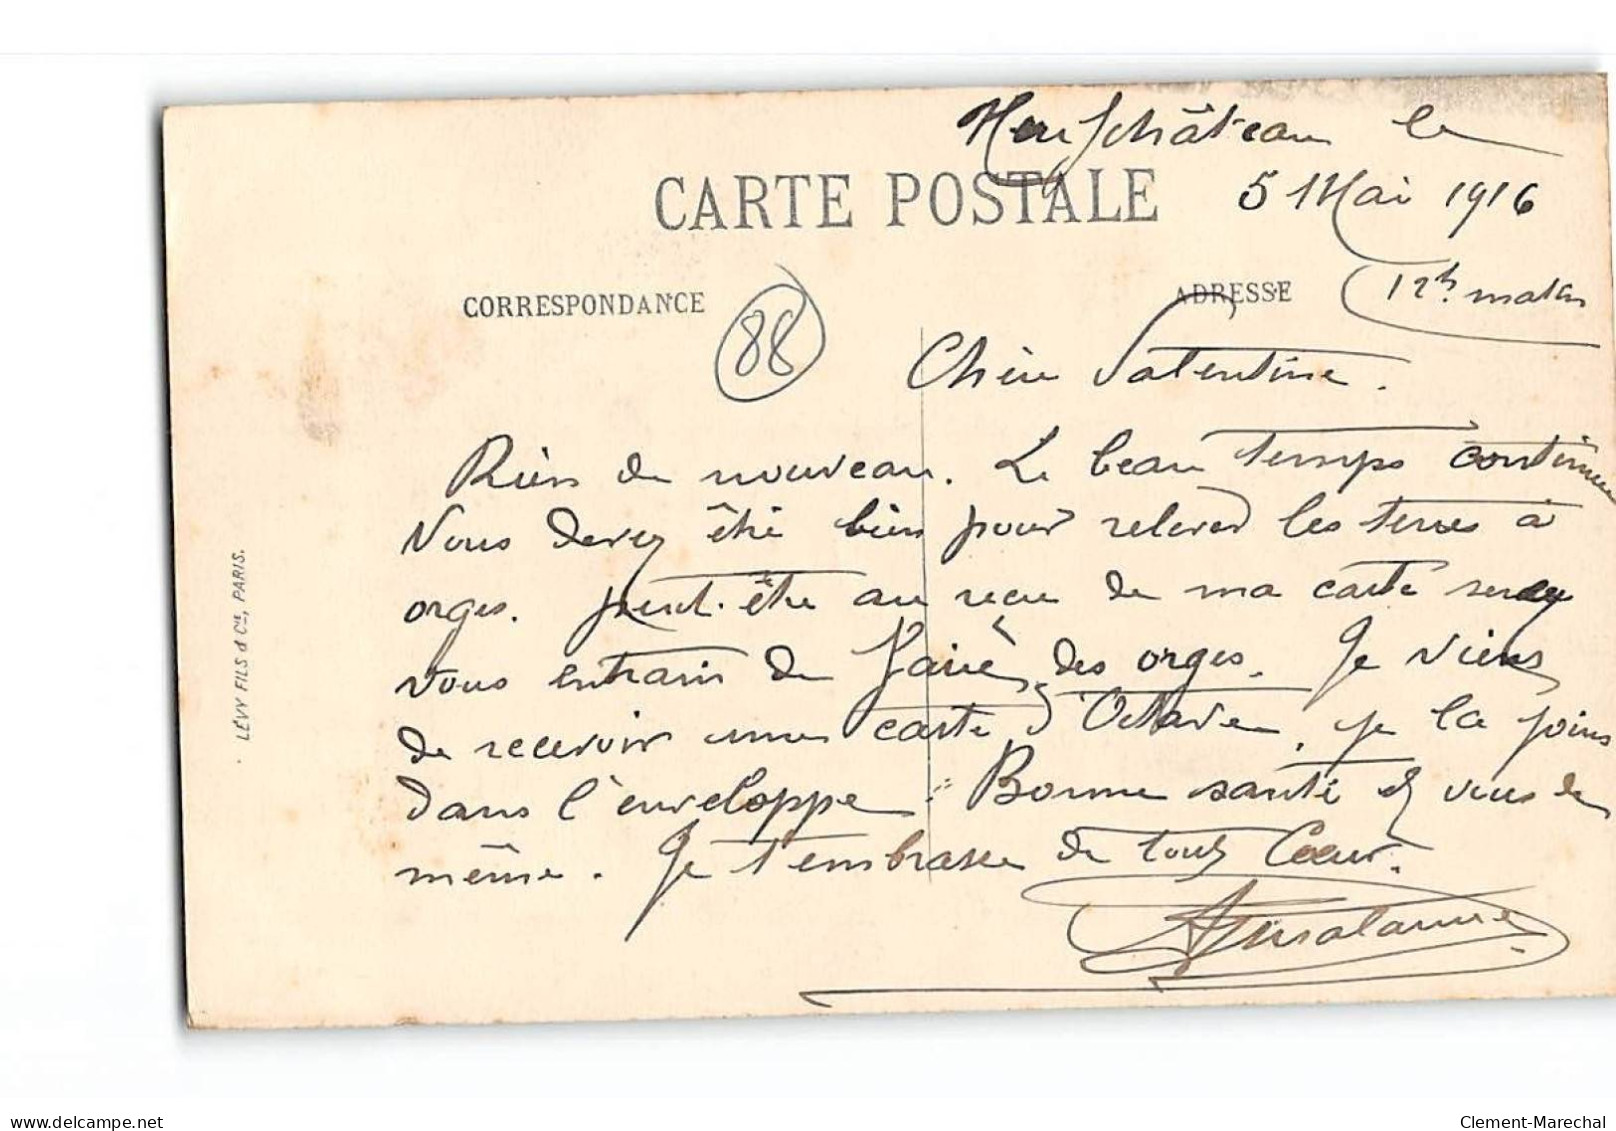 Neufchâteau le
CARTE POSTALE
5 Mai 1916
CORRESPONDANCE
88
ADRESSE
12h. matin
Chère Valentine.
Rien de nouveau. Le beau temps continue
Vous devez être bien pour relever les terres à
orges. peut-être au reçu de ma carte serez
vous entrain de faire des orges. Je viens
de recevoir une carte d'Octave, je la joins
dans l'enveloppe. Bonne santé et vous de
même. Je t'embrasse de tout Cœur.
LÉVY FILS & Cie, PARIS.
delcampe.net
Clement-Marechal